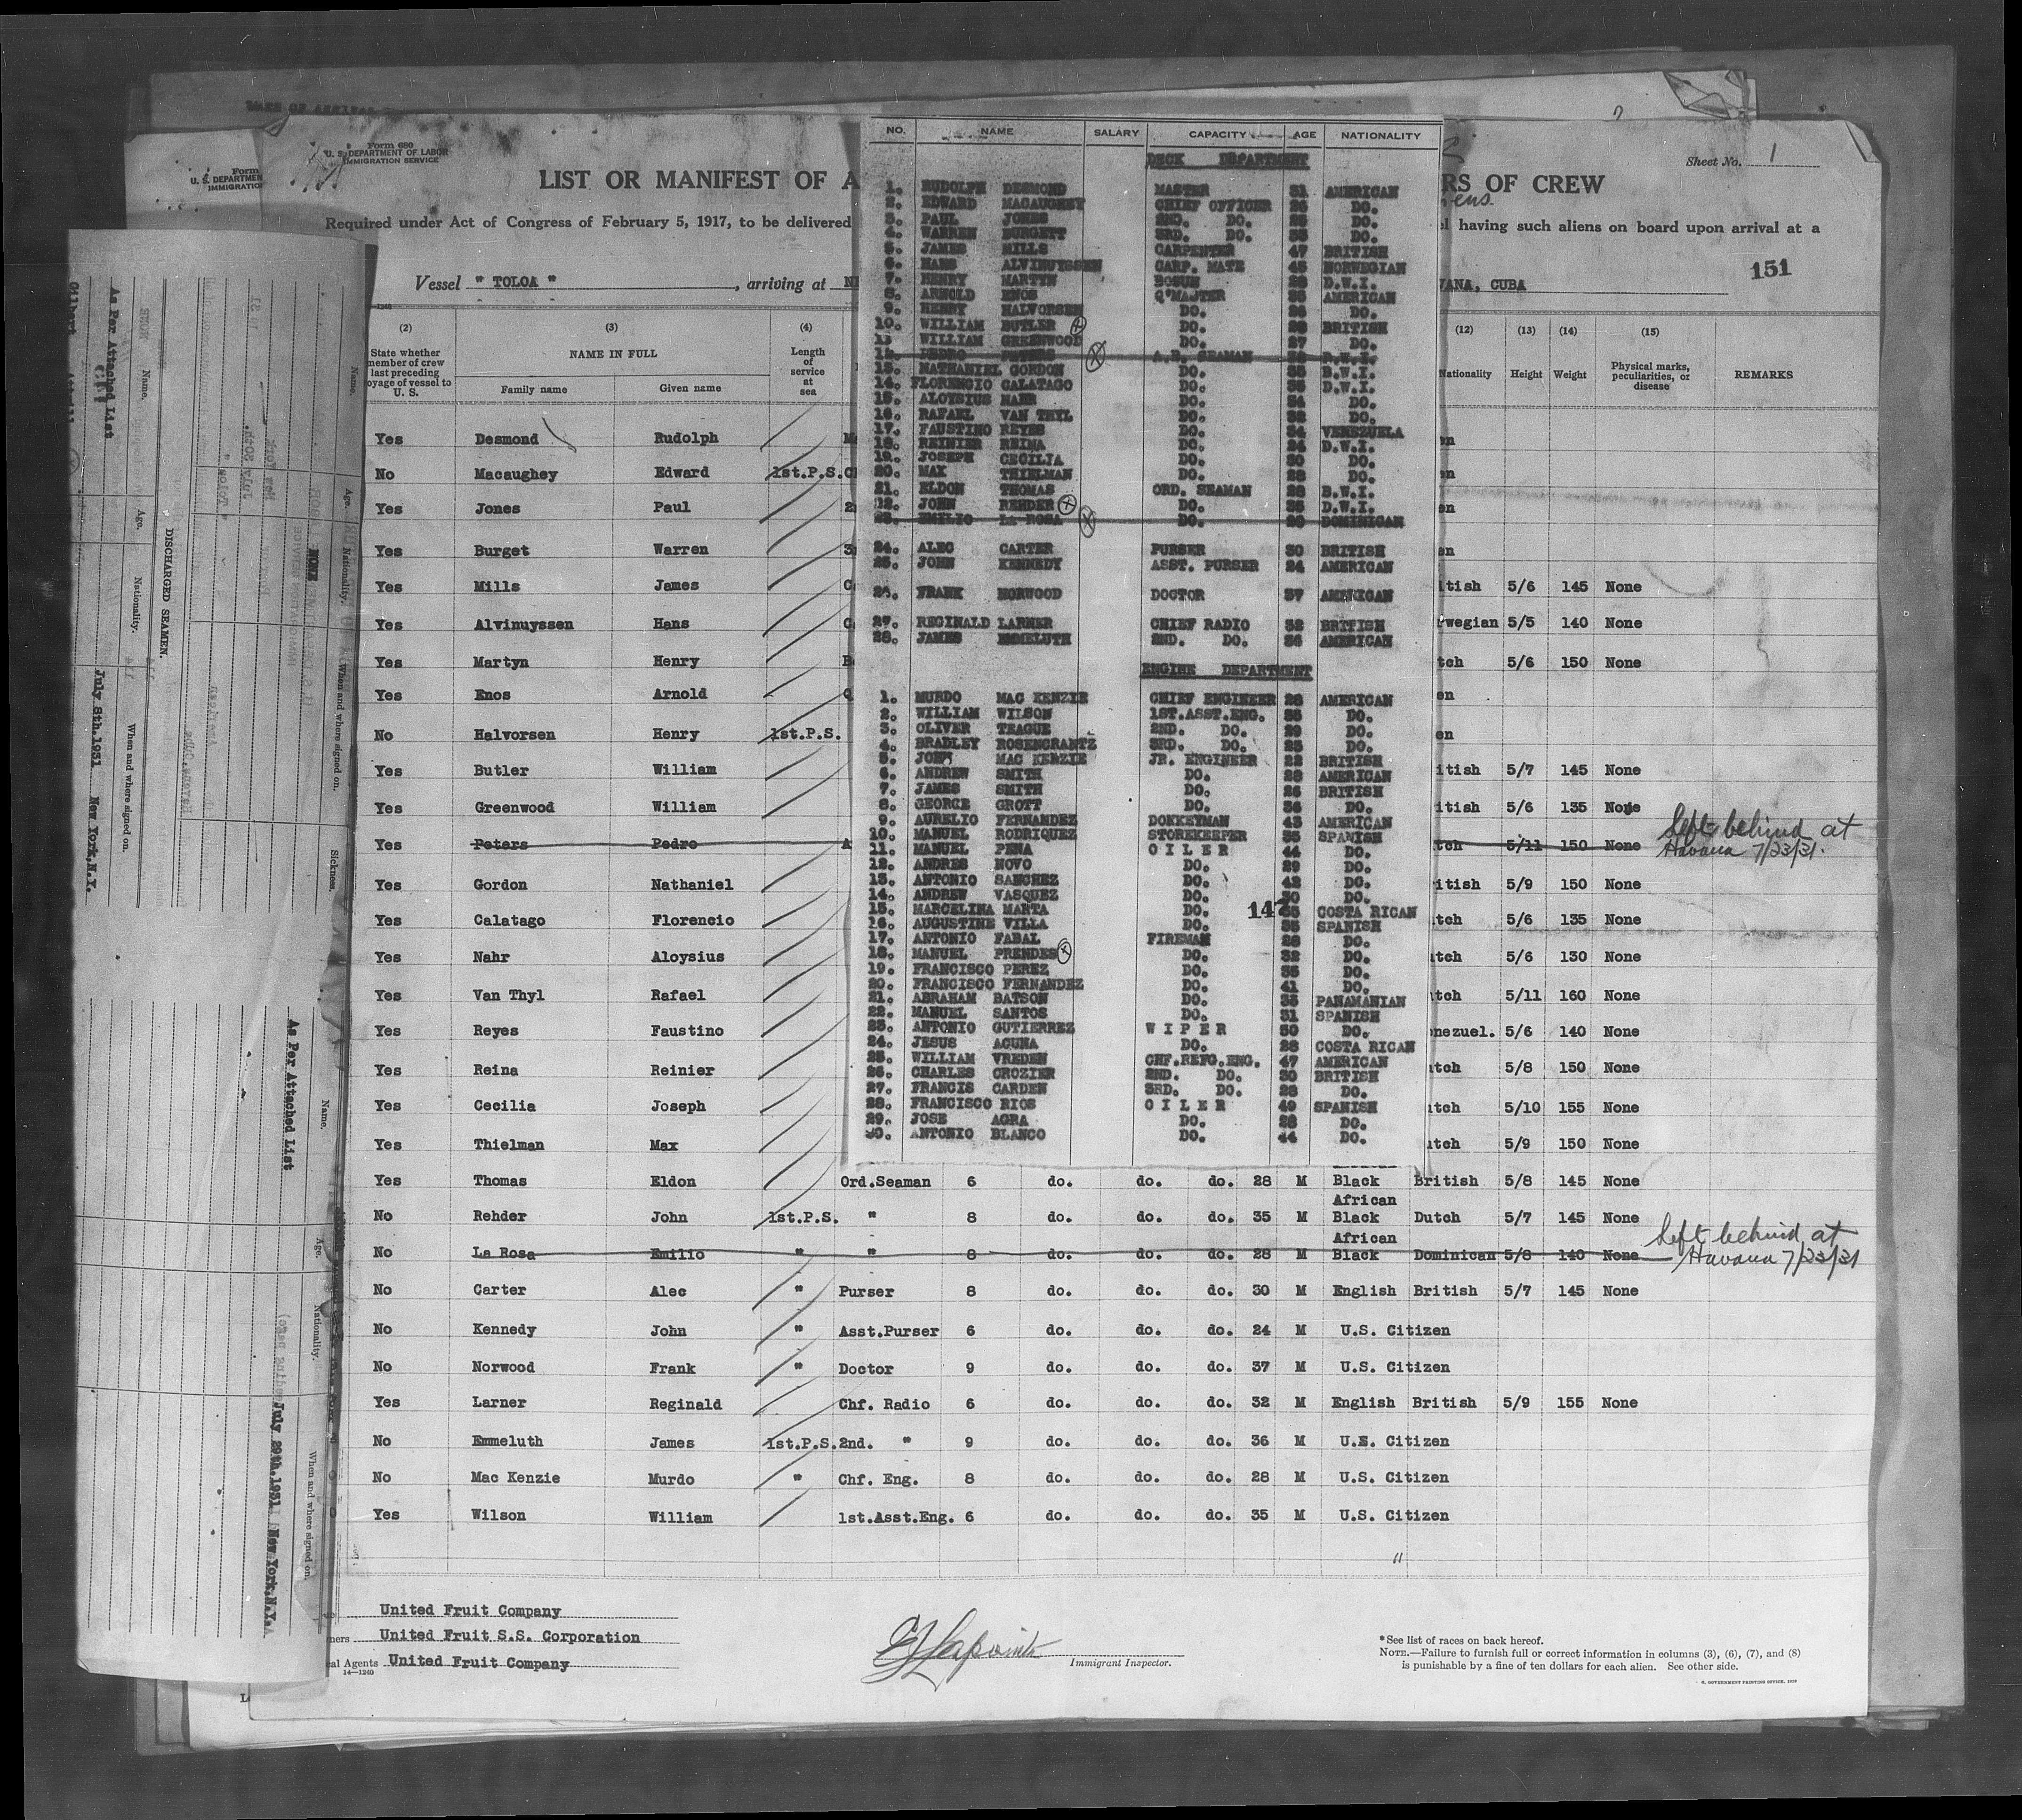 Form 680
U. S. DEPARTMENT OF LABOR
IMMIGRATION SERVICE
Sheet No. 1
LIST OR MANIFEST OF A
RS OF CREW
Required under Act of Congress of February 5, 1917, to be delivered
having such aliens on board upon arrival at a
Vessel " TOLOA ", arriving at
VANA, CUBA
151
(2) (3) (4) (12) (13) (14) (15)
State whether member of crew last preceding voyage of vessel to U. S.
NAME IN FULL
Family name Given name
Length of service at sea
Nationality Height Weight
Physical marks, peculiarities, or disease
REMARKS
Yes Desmond Rudolph
No Macaughey Edward 1st.P.S.
Yes Jones Paul 2
Yes Burget Warren 3
Yes Mills James tish 5/6 145 None
Yes Alvinuyssen Hans wegian 5/5 140 None
Yes Martyn Henry tch 5/6 150 None
Yes Enos Arnold
No Halvorsen Henry 1st.P.S.
Yes Butler William itish 5/7 145 None
Yes Greenwood William itish 5/6 135 None
Yes Peters Pedro A tch 5/11 150 None Left behind at Havana 7/23/31.
Yes Gordon Nathaniel itish 5/9 150 None
Yes Calatago Florencio tch 5/6 135 None
Yes Nahr Aloysius tch 5/6 130 None
Yes Van Thyl Rafael tch 5/11 160 None
Yes Reyes Faustino nezuel. 5/6 140 None
Yes Reina Reinier tch 5/8 150 None
Yes Cecilia Joseph tch 5/10 155 None
Yes Thielman Max tch 5/9 150 None
Yes Thomas Eldon Ord.Seaman 6 do. do. do. 28 M Black British 5/8 145 None
African
No Rehder John 1st.P.S. " 8 do. do. do. 35 M Black Dutch 5/7 145 None
African
No La Rosa Emilio " " 8 do. do. do. 28 M Black Dominican 5/8 140 None Left behind at Havana 7/23/31
No Carter Alec " Purser 8 do. do. do. 30 M English British 5/7 145 None
No Kennedy John " Asst.Purser 6 do. do. do. 24 M U.S. Citizen
No Norwood Frank " Doctor 9 do. do. do. 37 M U.S. Citizen
Yes Larner Reginald Chf. Radio 6 do. do. do. 32 M English British 5/9 155 None
No Emmeluth James 1st.P.S. 2nd. " 9 do. do. do. 36 M U.S. Citizen
No Mac Kenzie Murdo " Chf. Eng. 8 do. do. do. 28 M U.S. Citizen
Yes Wilson William 1st.Asst.Eng. 6 do. do. do. 35 M U.S. Citizen
United Fruit Company
ners United Fruit S.S. Corporation
al Agents United Fruit Company
14—1240
Immigrant Inspector.
*See list of races on back hereof.
NOTE.—Failure to furnish full or correct information in columns (3), (6), (7), and (8)
is punishable by a fine of ten dollars for each alien. See other side.
NO. NAME SALARY CAPACITY AGE NATIONALITY
DECK DEPARTMENT
1. RUDOLPH DESMOND MASTER 31 AMERICAN
2. EDWARD MACAUGHEY CHIEF OFFICER 26 DO.
3. PAUL JONES 2ND. DO. 25 DO.
4. WARREN BURGETT 3RD. DO. 35 DO.
5. JAMES MILLS CARPENTER 47 BRITISH
6. HANS ALVINUYSSEN CARP. MATE 45 NORWEGIAN
7. HENRY MARTYN BOSUN 28 D.W.I.
8. ARNOLD ENOS Q'MASTER 35 AMERICAN
9. HENRY HALVORSEN DO. 26 DO.
10. WILLIAM BUTLER DO. 28 BRITISH
11 WILLIAM GREENWOOD DO. 27 DO.
12. PEDRO PETERS A.B. SEAMAN D.W.I.
13. NATHANIEL GORDON DO. 35 B.W.I.
14. FLORENCIO CALATAGO DO. 35 D.W.I.
15. ALOYSIUS NAHR DO. 34 DO.
16. RAFAEL VAN THYL DO. 32 DO.
17. FAUSTINO REYES DO. 34 VENEZUELA
18. REINIER REINA DO. 24 D.W.I.
19. JOSEPH CECILIA DO. 30 DO.
20. MAX THIELMAN DO. 28 DO.
21. ELDON THOMAS ORD. SEAMAN 28 B.W.I.
22. JOHN REHDER DO. 35 D.W.I.
23. EMILIO LA ROSA DO. 28 DOMINICAN
24. ALEC CARTER PURSER 30 BRITISH
25. JOHN KENNEDY ASST. PURSER 24 AMERICAN
26. FRANK NORWOOD DOCTOR 37 AMERICAN
27. REGINALD LARNER CHIEF RADIO 32 BRITISH
28. JAMES EMMELUTH 2ND. DO. 36 AMERICAN
ENGINE DEPARTMENT
1. MURDO MAC KENZIE CHIEF ENGINEER 28 AMERICAN
2. WILLIAM WILSON 1ST.ASST.ENG. 35 DO.
3. OLIVER TEAGUE 2ND. DO. 29 DO.
4. BRADLEY ROSENCRANTZ 3RD. DO. 25 DO.
5. JOHN MAC KENZIE JR. ENGINEER 22 BRITISH
6. ANDREW SMITH DO. 28 AMERICAN
7. JAMES SMITH DO. 26 BRITISH
8. GEORGE GROTT DO. 36 DO.
9. AURELIO FERNANDEZ DONKEYMAN 43 AMERICAN
10. MANUEL RODRIQUEZ STOREKEEPER 35 SPANISH
11. MANUEL PENA O I L E R 44 DO.
12. ANDRES NOVO DO. 29 DO.
13. ANTONIO SANCHEZ DO. 42 DO.
14. ANDREW VASQUEZ DO. 30 DO.
15. MARCELINA MARTA DO. 35 COSTA RICAN
147
16. AUGUSTINE VILLA DO. 35 SPANISH
17. ANTONIO FABAL FIREMAN 28 DO.
18. MANUEL PRENDES DO. 32 DO.
19. FRANCISCO PEREZ DO. 35 DO.
20. FRANCISCO FERNANDEZ DO. 41 DO.
21. ABRAHAM BATSON DO. 35 PANAMANIAN
22. MANUEL SANTOS DO. 31 SPANISH
23. ANTONIO GUTIERREZ W I P E R 30 DO.
24. JESUS ACUNA DO. 28 COSTA RICAN
25. WILLIAM VREDEN CHF.REFG.ENG. 47 AMERICAN
26. CHARLES CROZIER 2ND. DO. 30 BRITISH
27. FRANCIS CARDEN 3RD. DO. 28 DO.
28. FRANCISCO RIOS O I L E R 49 SPANISH
29. JOSE AGRA DO. 28 DO.
30. ANTONIO BLANCO DO. 44 DO.
DISCHARGED SEAMEN.
Name. Age. Nationality. When and where signed on.
As Per Attached List
July 8th.1931 New York,N.Y.
Name. Age. Nationality. When and where signed on. Sickness.
As Per Attached List
July 29th.1931 New York,N.Y.
Name. Age. Nationality. When and where signed on.